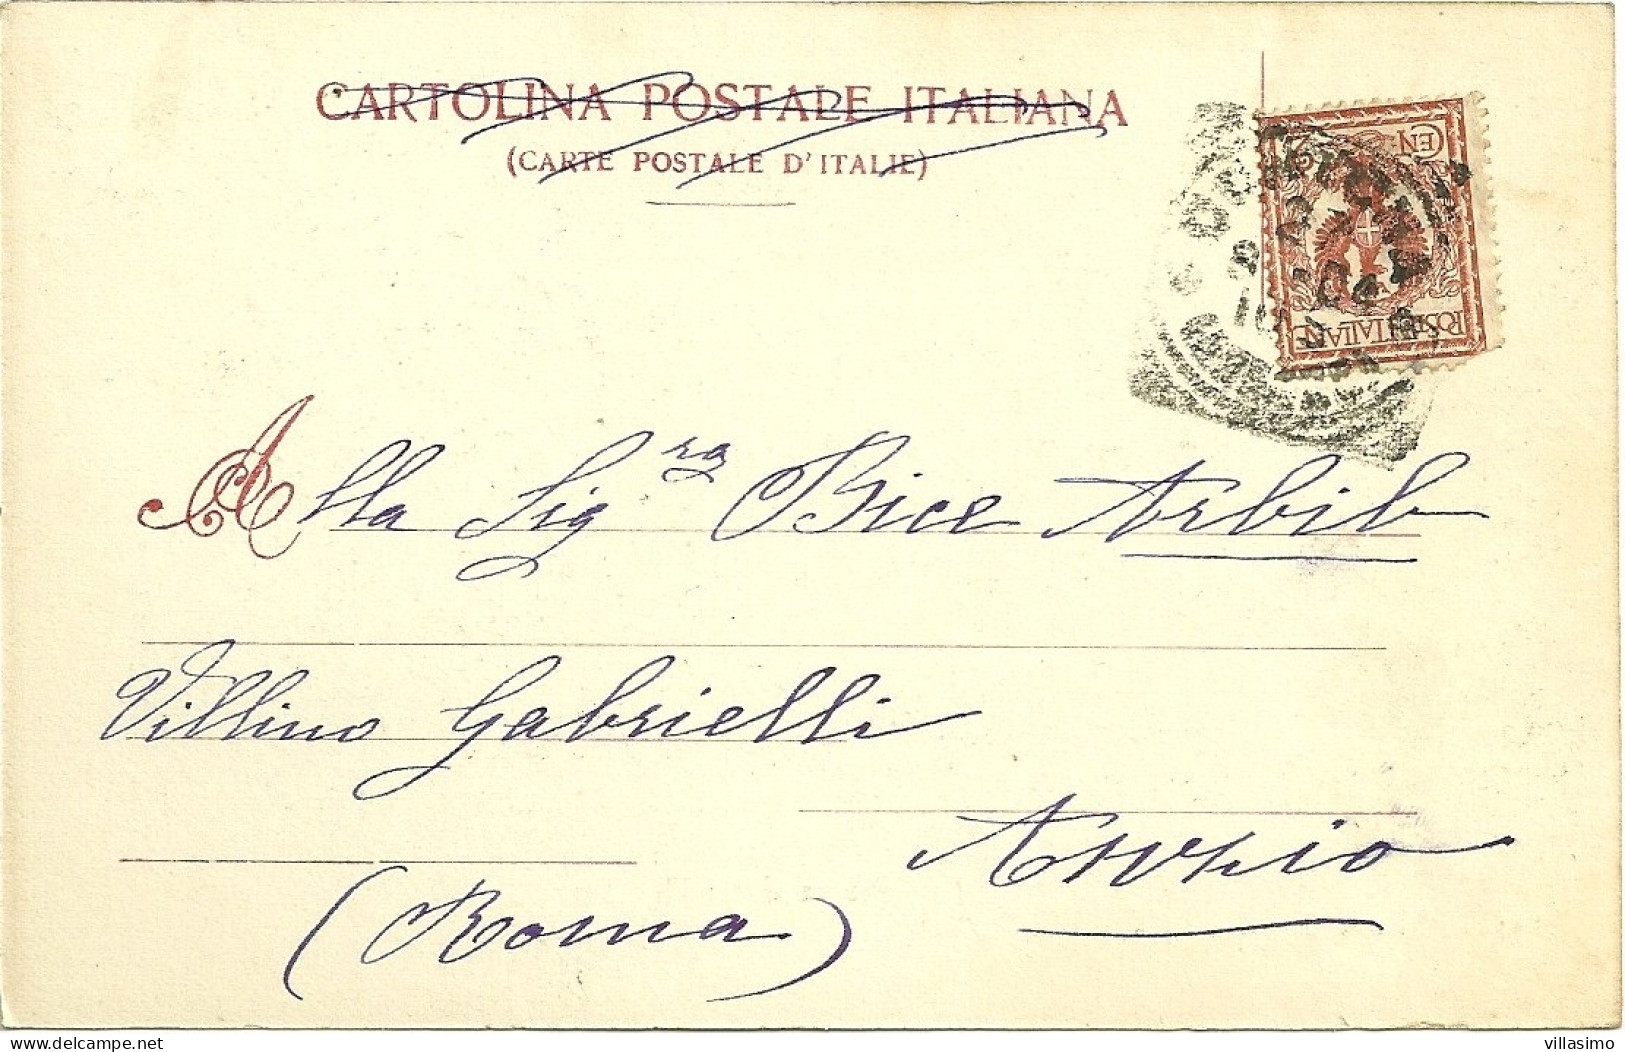 CARTOLINA POSTALE ITALIANA
(CARTE POSTALE D'ITALIE)
POSTE ITALIANE
CEN
Alla Sigra Bice Arbib
Villino Gabrielli
Anzio
(Roma)
delcampe.net
villasimo